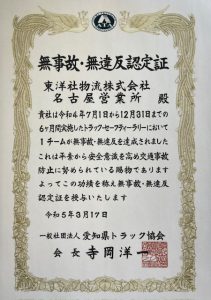 無事故・無違反認定証
東洋社物流株式会社
名古屋営業所 殿
貴社は令和4年7月1日から12月31日までの
6ヶ月間実施したトラック・セーフティーラリーにおいて
1チームが無事故・無違反を達成されました
これは平素から安全意識を高め交通事故
防止に努められている賜物であります
よってこの功績を称え無事故・無違反
認定証を授与いたします
令和5年3月17日
一般社団法人 愛知県トラック協会
会長 寺岡洋一